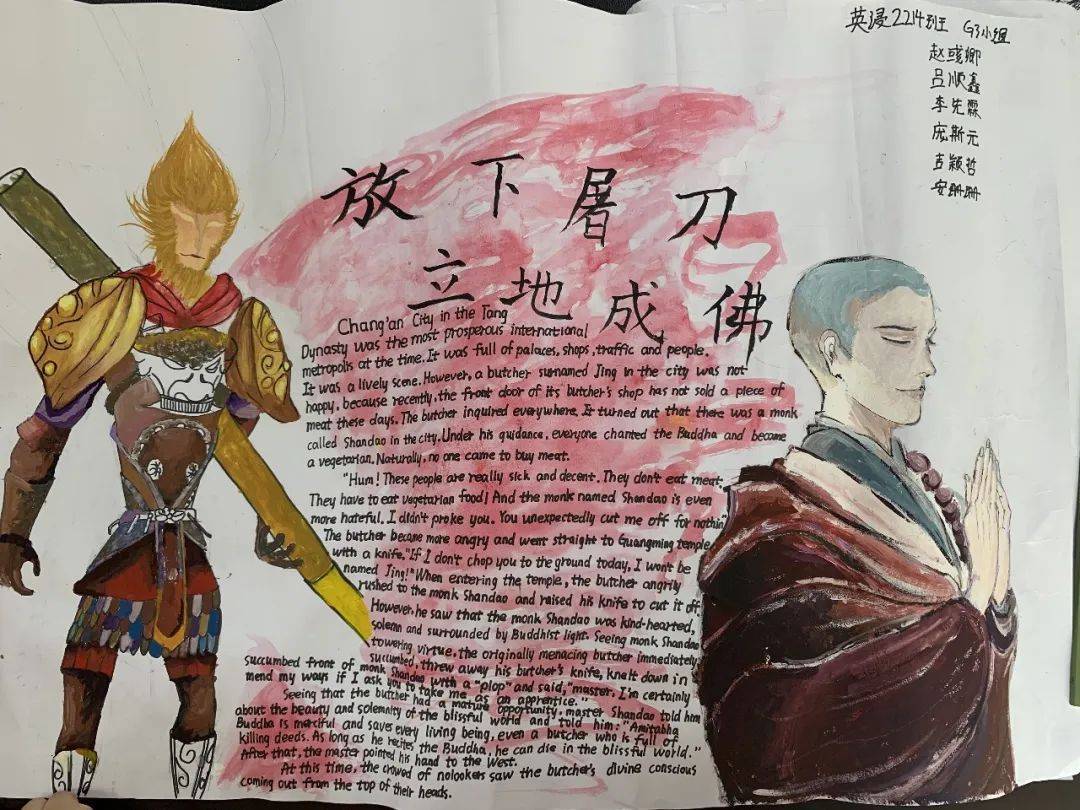 英浸2214班 G3小组
赵彧卿
吕顺鑫
李先霖
庞斯元
吉颖哲
安珊珊
放下屠刀
立地成佛
Chang'an City in the Tang
Dynasty was the most prosperous international
metropolis at the time. It was full of palaces, shops, traffic and people.
It was a lively scene. However, a butcher surnamed Jing in the city was not
happy, because recently, the front door of its butcher's shop has not sold a piece of
meat these days. The butcher inquired everywhere. It turned out that there was a monk
called Shandao in the city. Under his guidance, everyone chanted the Buddha and became
a vegetarian. Naturally, no one came to buy meat.
"Hum! These people are really sick and decent. They don't eat meat.
They have to eat vegetarian food! And the monk named Shandao is even
more hateful. I didn't proke you. You unexpectedly cut me off for nothin"
The butcher became more angry and went straight to Guangming temple
with a knife. "If I don't chop you to the ground today, I won't be
named Jing!" When entering the temple, the butcher angrily
rushed to the monk Shandao and raised his knife to cut it off.
However, he saw that the monk Shandao was kind-hearted,
solemn and surrounded by Buddhist light. Seeing monk Shandao
towering virtue, the originally menacing butcher immediately
succumbed, threw away his butcher's knife, knelt down in
succumbed front of monk Shandao with a "plop" and said, "master, I'm certainly
mend my ways if I ask you to take me as an apprentice."
Seeing that the butcher had a mature opportunity, master Shandao told him
about the beauty and solemnity of the blissful world and told him: "Amitabha
Buddha is merciful and saves every living being, even a butcher who is full of
killing deeds. As long as he recites the Buddha, he can die in the blissful world."
After that, the master pointed his hand to the West.
At this time, the crowd of nolookers saw the butcher's divine conscious
coming out from the top of their heads.